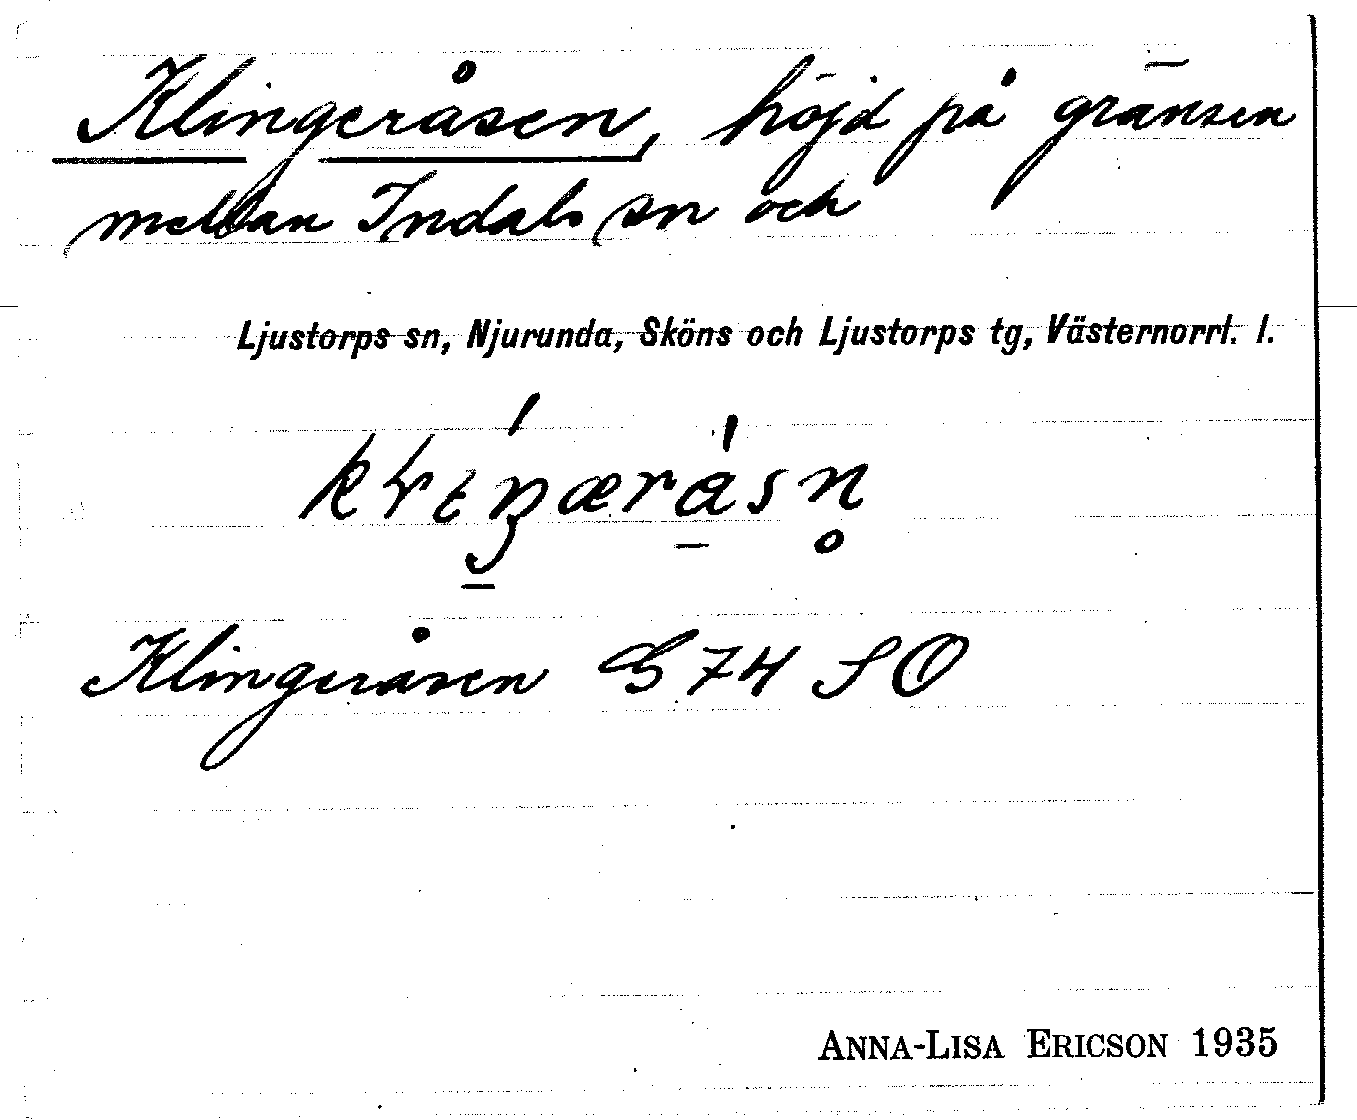 Klingeråsen, höjd på gränsen
mellan Indals sn och
Ljustorps sn, Njurunda, Sköns och Ljustorps tg, Västernorrl. l.
Klingeråsen G 74 SO
ANNA-LISA ERICSON 1935